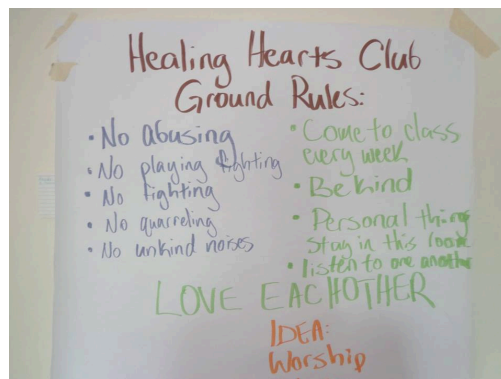 Healing Hearts Club
Ground Rules:
• No abusing
• No playing fighting
• No fighting
• No quarreling
• No unkind noises
• Come to class
every week
• Be kind
• Personal things
stay in this room
• listen to one another
LOVE EACHOTHER
IDEA:
Worship